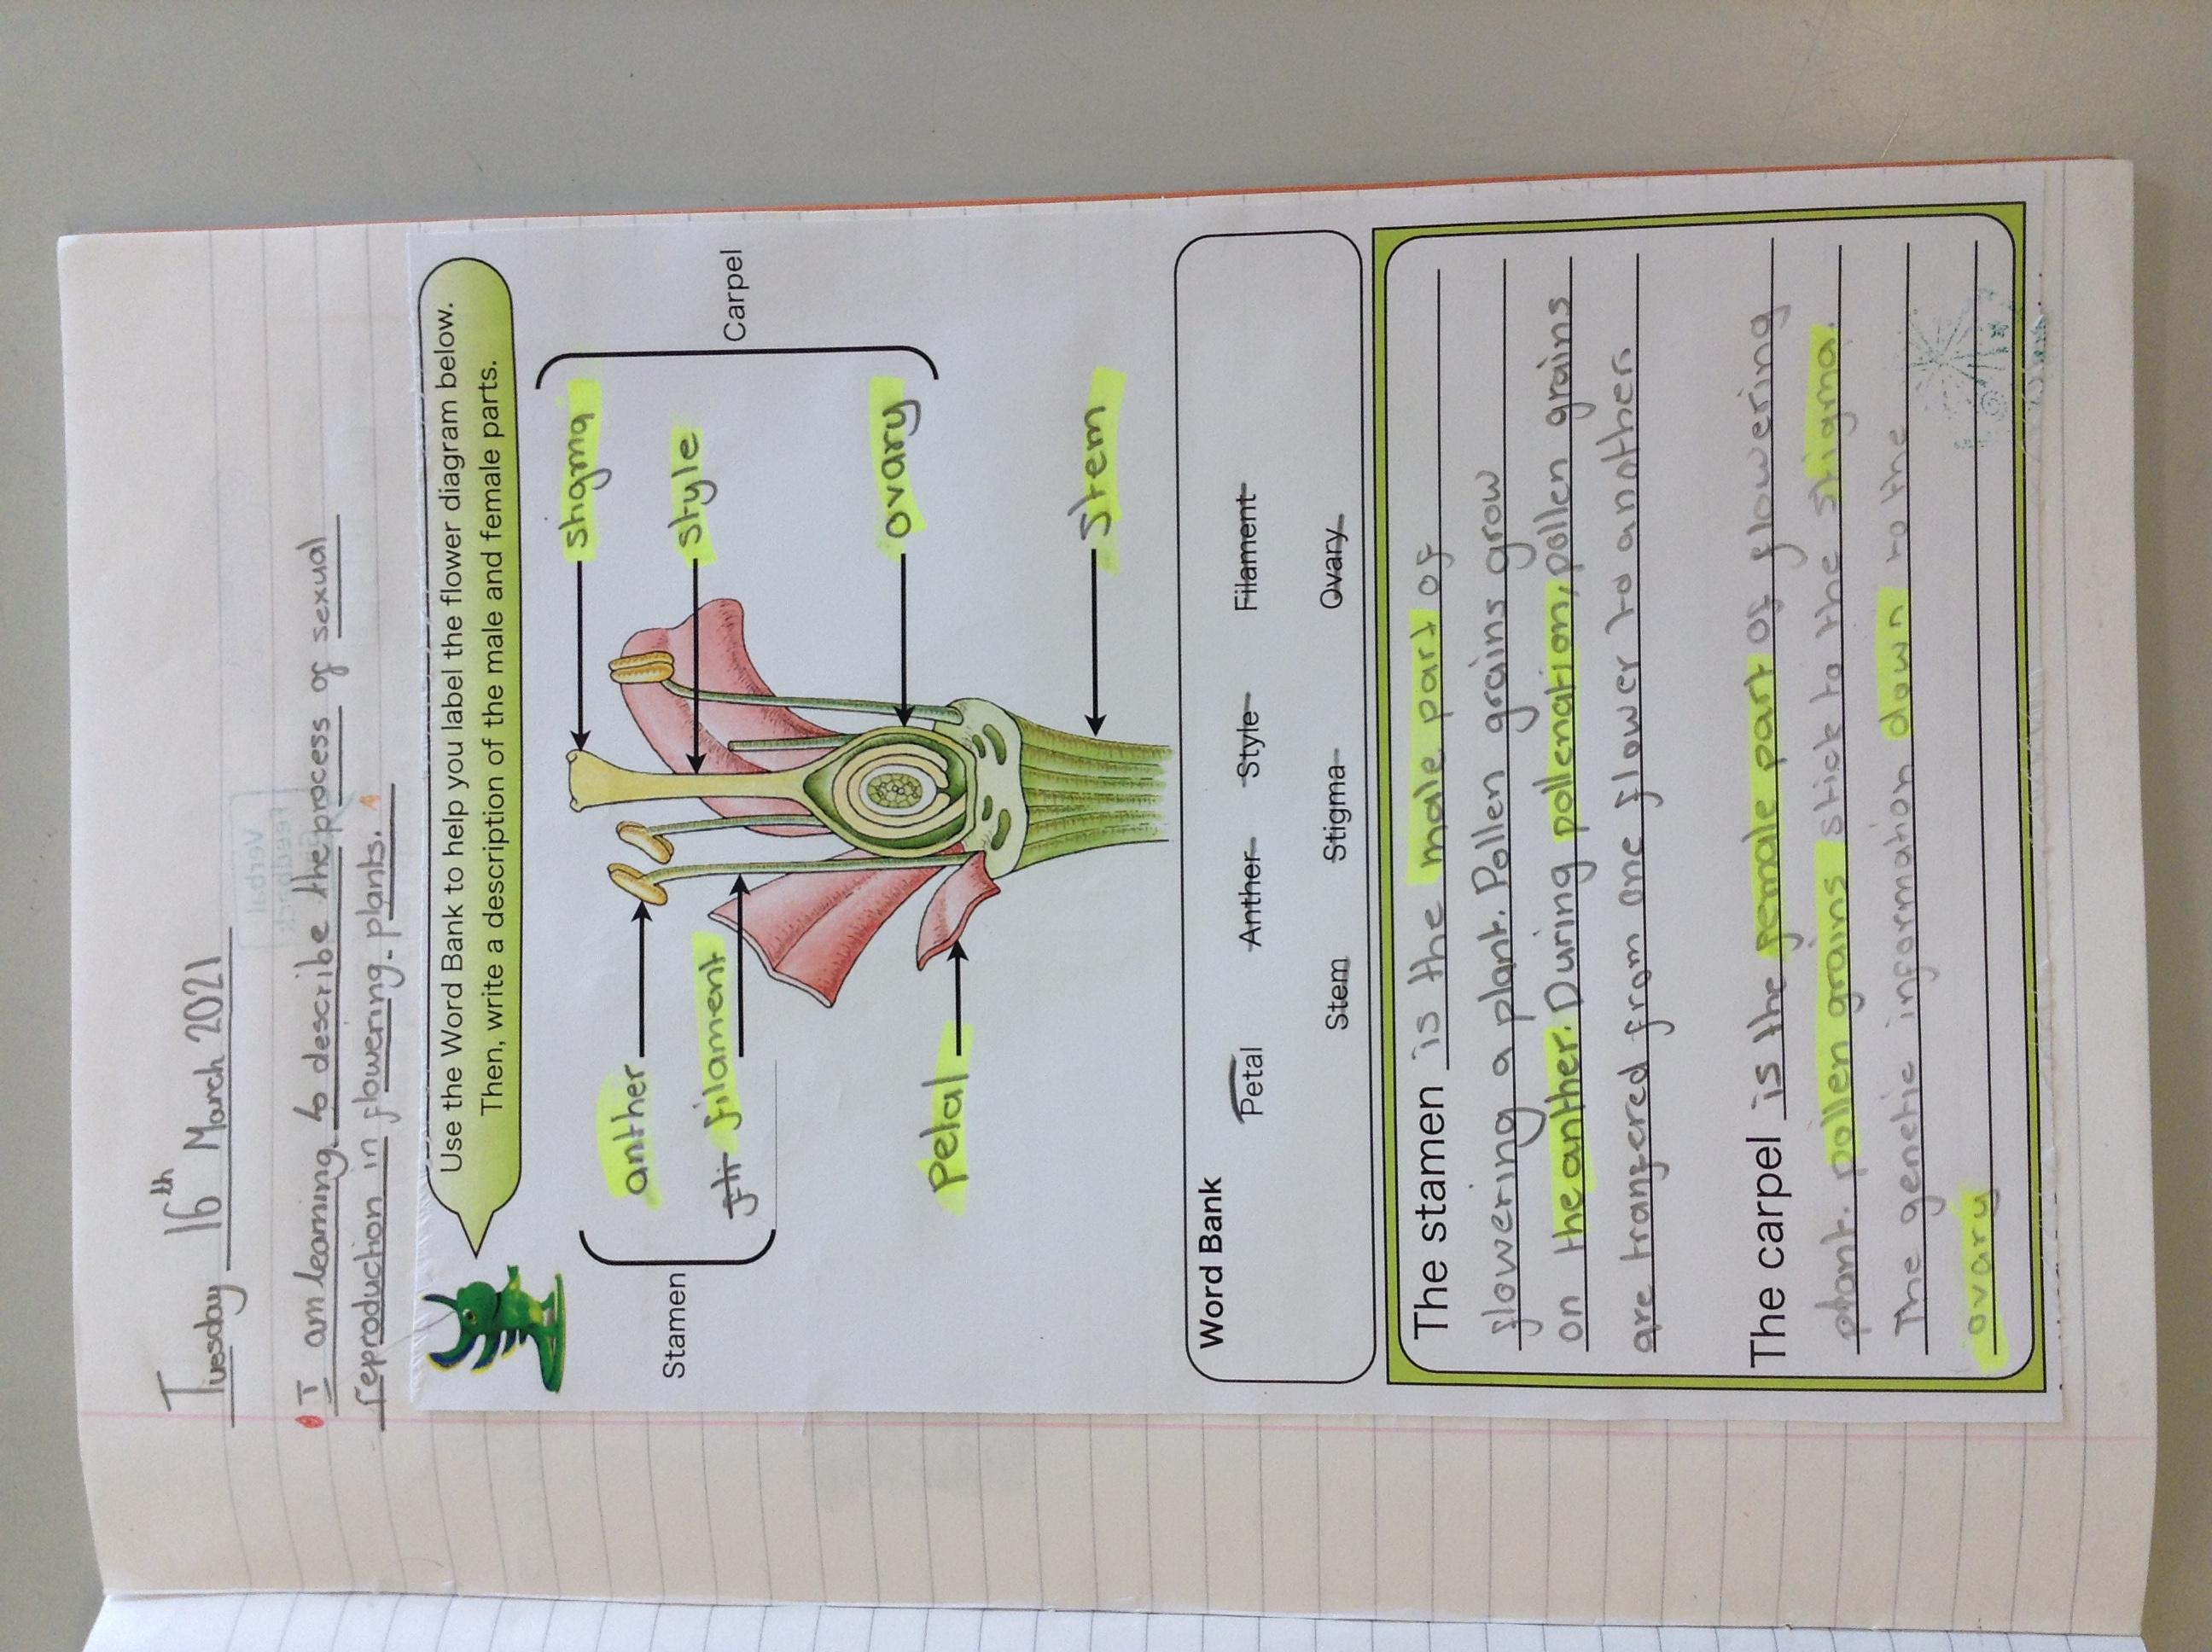 Tuesday 16th March 2021
I am learning to describe the process of sexual
reproduction in flowering plants.
Use the Word Bank to help you label the flower diagram below.
Then, write a description of the male and female parts.
Stamen
anther
fti filament
Petal
stigma
style
ovary
Stem
Carpel
Word Bank
Petal Anther Style Filament
Stem Stigma Ovary
The stamen is the male part of
flowering a plant. Pollen grains grow
on the anther. During pollenation, pollen grains
are transfered from one flower to another.
The carpel is the female part of flowering
plant. pollen grains stick to the stigma.
The genetic information down to the
ovary